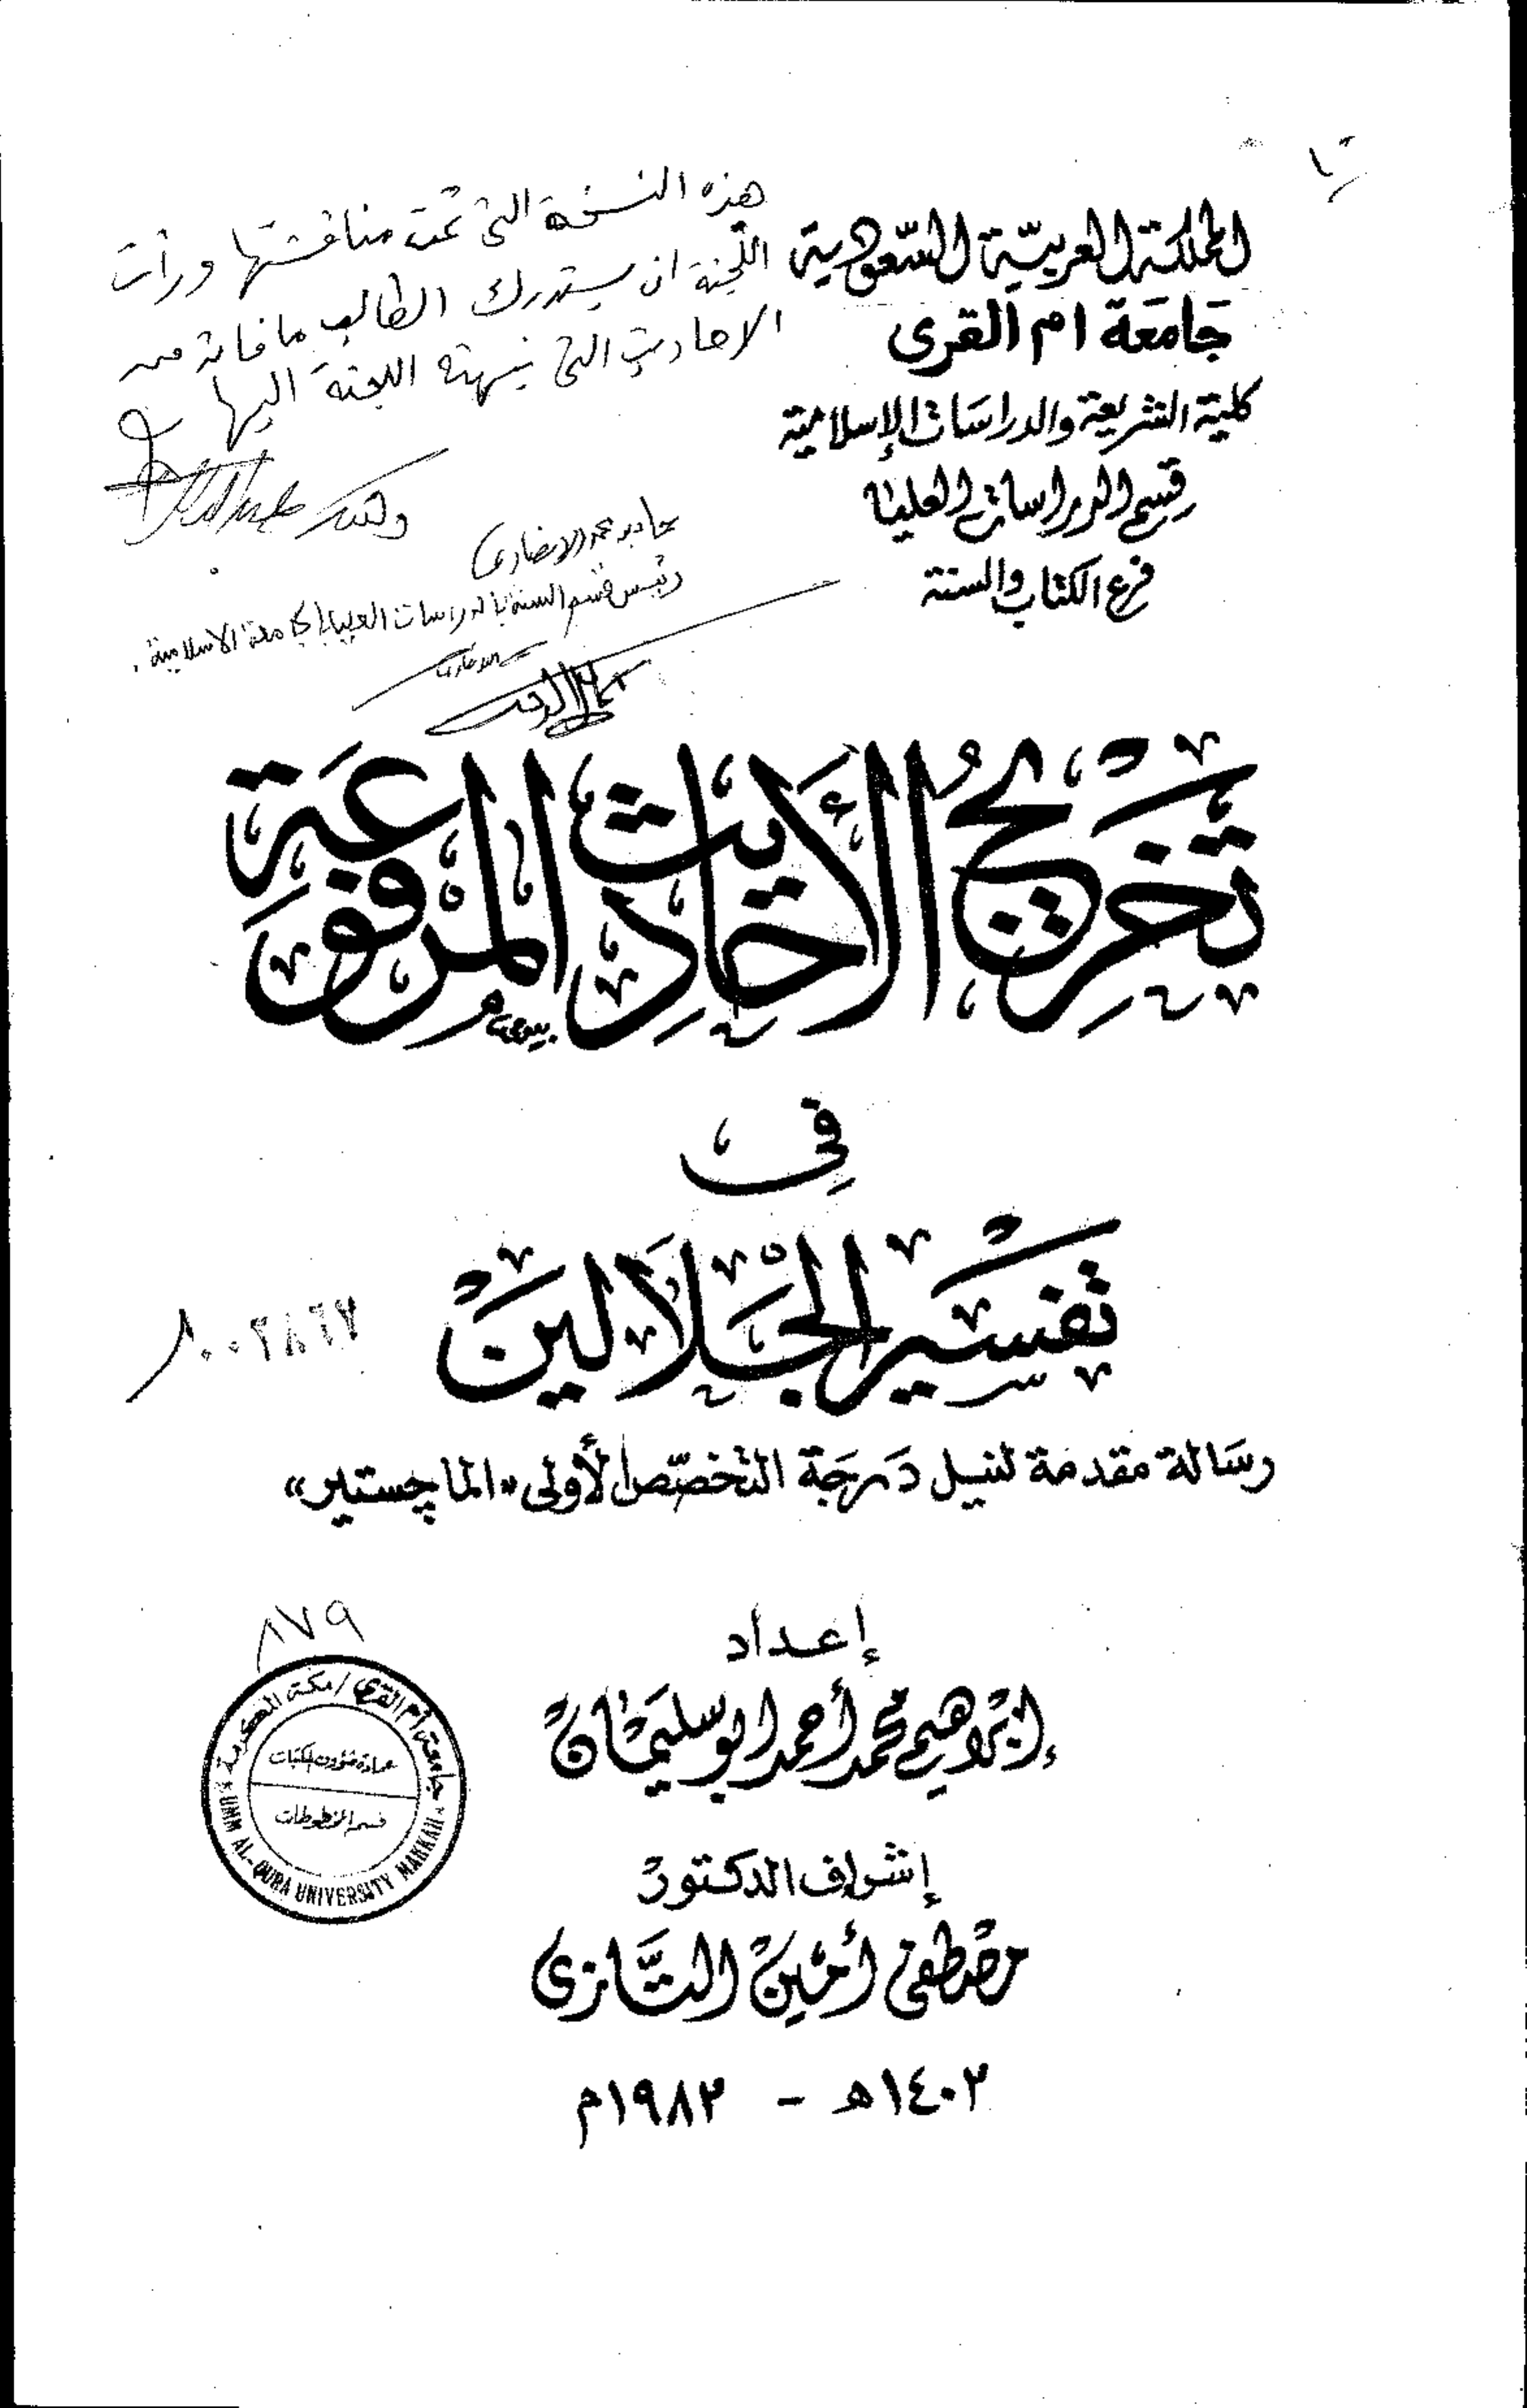 المملكة العربيّة السّعودية
جَامعَة ام القرى
كلية الشريعة والدراسَات الإسلامية
قسم الدراسات العليا
فرع الكتاب والسنة
هذه النسخة التي تمت مناقشتها ورأت
اللجنة ان يستدرك الطالب ما فاته من
الاحاديث التي نبهته اللجنة اليها
حماد بن محمد الانصاري
رئيس قسم السنة بالدراسات العليا بالجامعة الاسلامية.
تَخريجُ الأحَاديث المرْفوعَة
في
تفسَير الجَلالين
٨٠٠٢٨٦٧
رسَالة مقدمة لنيل دَرجَة التخصّص الأولى «الماجستير»
إعداد
إبْراهيم محمد أحمد ابو سليمَان
٨٧٩
جامعة أم القرى / مكة المكرمة
عمادة شؤون المكتبات
قسم المخطوطات
UMM AL-QURA UNIVERSITY MAKKAH
إشراف الدكتور
مصطفى أمْين التَّازى
١٤٠٢هـ - ١٩٨٢م